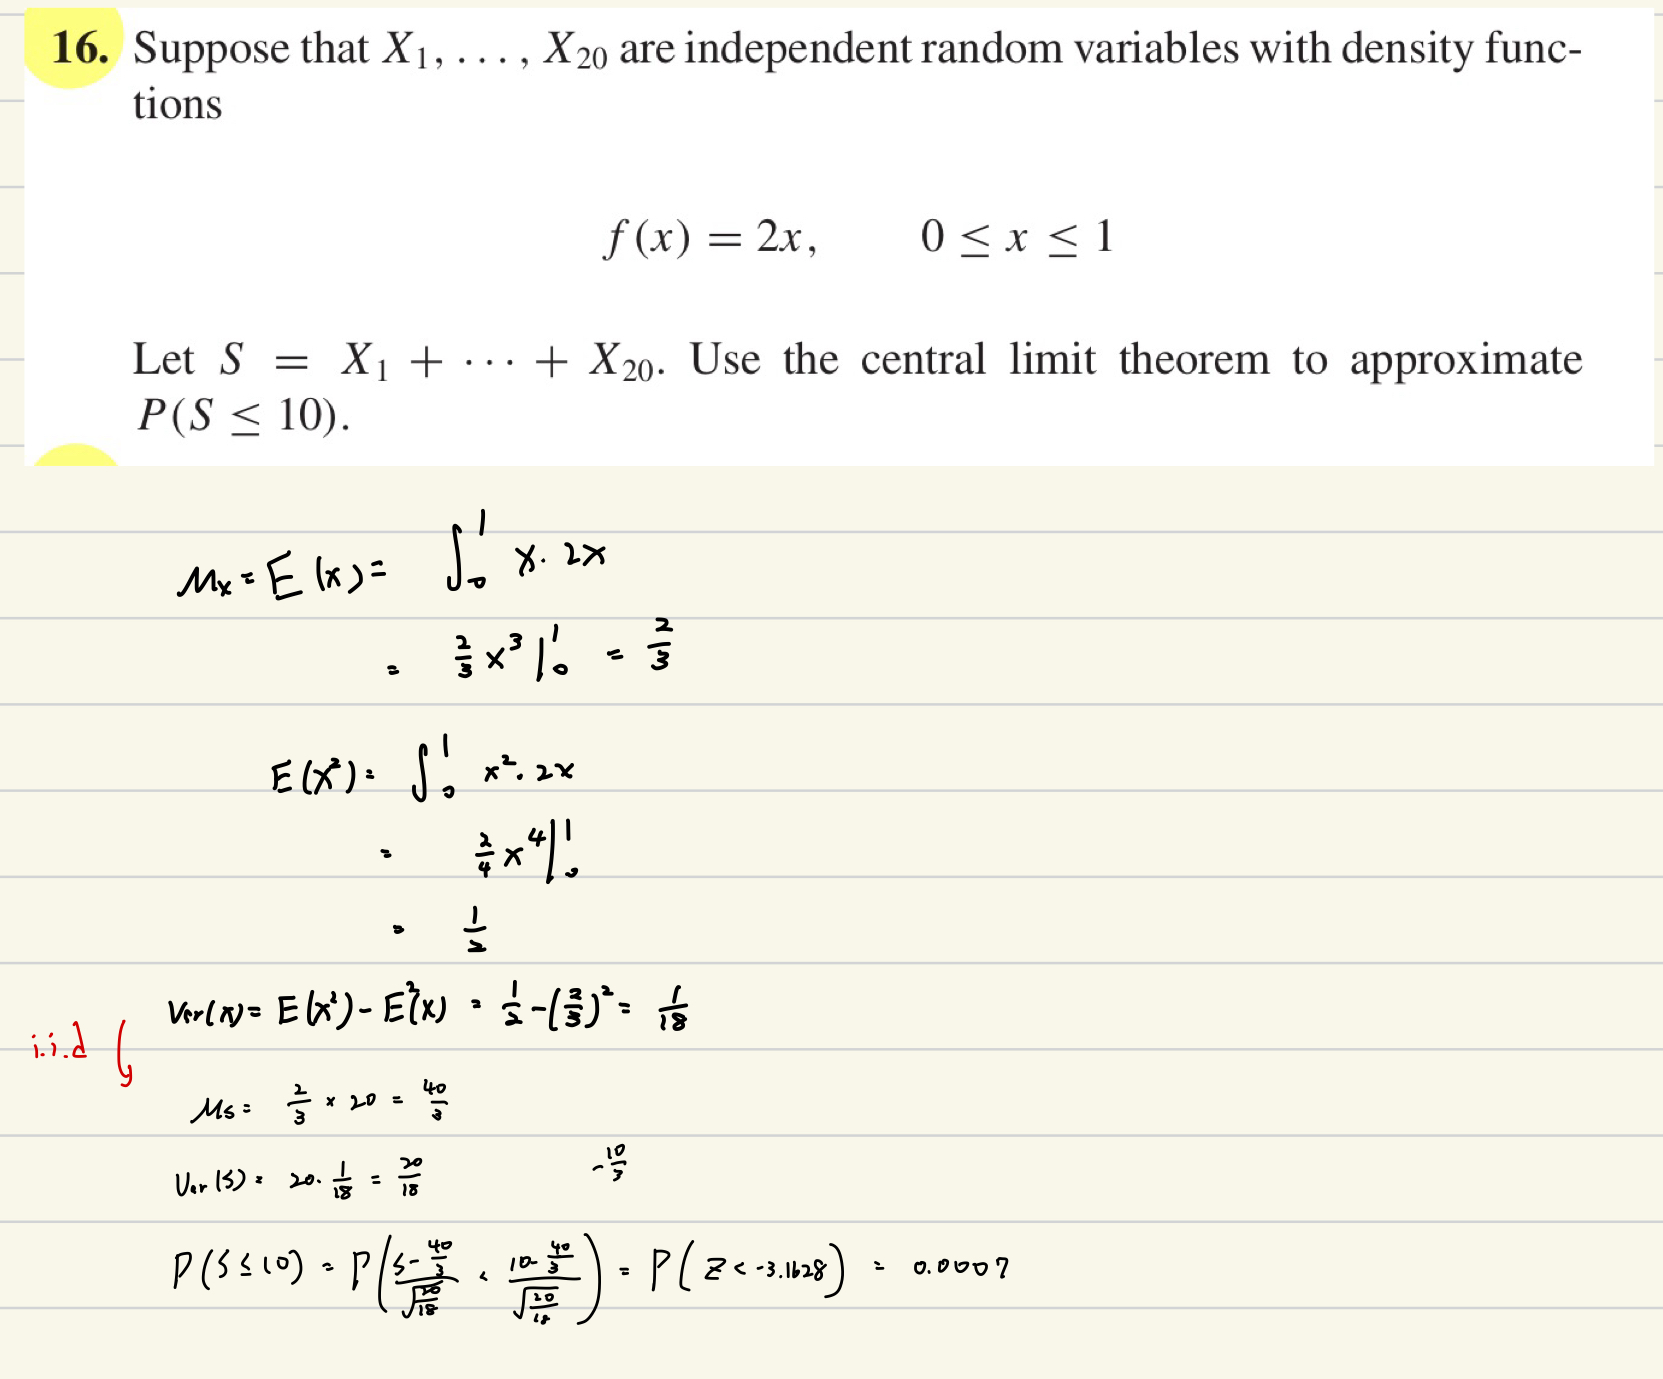 16. Suppose that X₁, . . . , X₂₀ are independent random variables with density func-
tions
f(x) = 2x, 0 ≤ x ≤ 1
Let S = X₁ + · · · + X₂₀. Use the central limit theorem to approximate
P(S ≤ 10).
μₓ = E(x) = ∫₀¹ x · 2x
= 2/3 x³ |₀¹ = 2/3
E(x²) = ∫₀¹ x² · 2x
= 2/4 x⁴ |₀¹
= 1/2
Var(x) = E(x²) - E²(x) = 1/2 - (2/3)² = 1/18
i.i.d
μs = 2/3 × 20 = 40/3
-10/3
Var(S) = 20 · 1/18 = 20/18
P(S ≤ 10) = P( (S - 40/3)/√(20/18) < (10 - 40/3)/√(20/18) ) = P( Z < -3.1628 ) = 0.0007